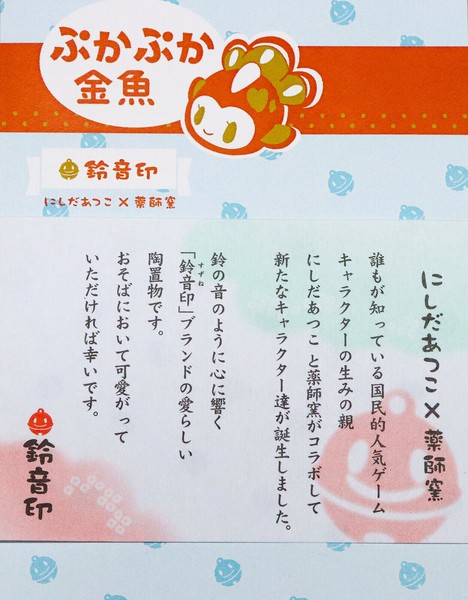 ぷかぷか
金魚
鈴音印
にしだあつこ×薬師窯
にしだあつこ×薬師窯
誰もが知っている国民的人気ゲーム
キャラクターの生みの親
にしだあつこと薬師窯がコラボして
新たなキャラクター達が誕生しました。
鈴の音のように心に響く
「鈴音印」ブランドの愛らしい
すずね
陶置物です。
おそばにおいて可愛がって
いただければ幸いです。
鈴音印